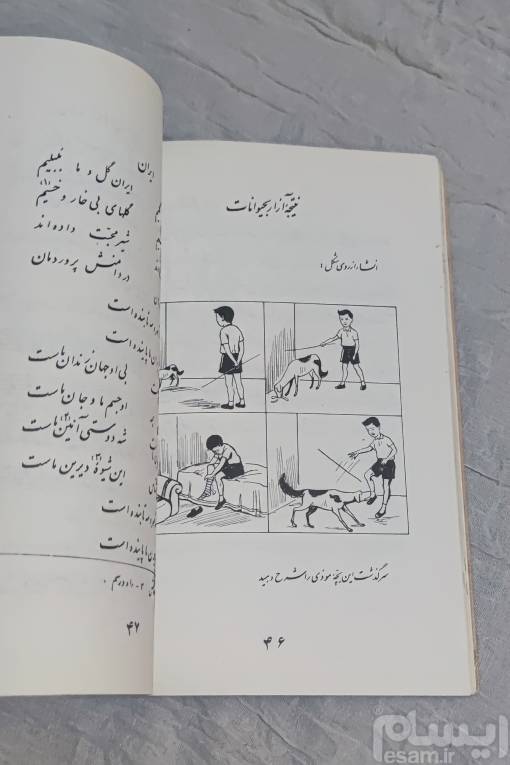 نتیجهٔ آزار بحیوانات
انشاء از روی شکل :
سرگذشت این بچهٔ موذی را شرح دهید
۴۶
ایران
ایران گل و ما بلبلیم
گلهای بی خار و خسیم(۱)
شیر محبت داده اند
در دامنش پروردمان
پاینده است
پاینده است
بی او جهان زندان ماست
او جسم ما و جان ماست
شه دوستی آئین(۲) ماست
این شیوهٔ(۳) دیرین ماست
پاینده است
پاینده است
۴۷
ایسام
esam.ir